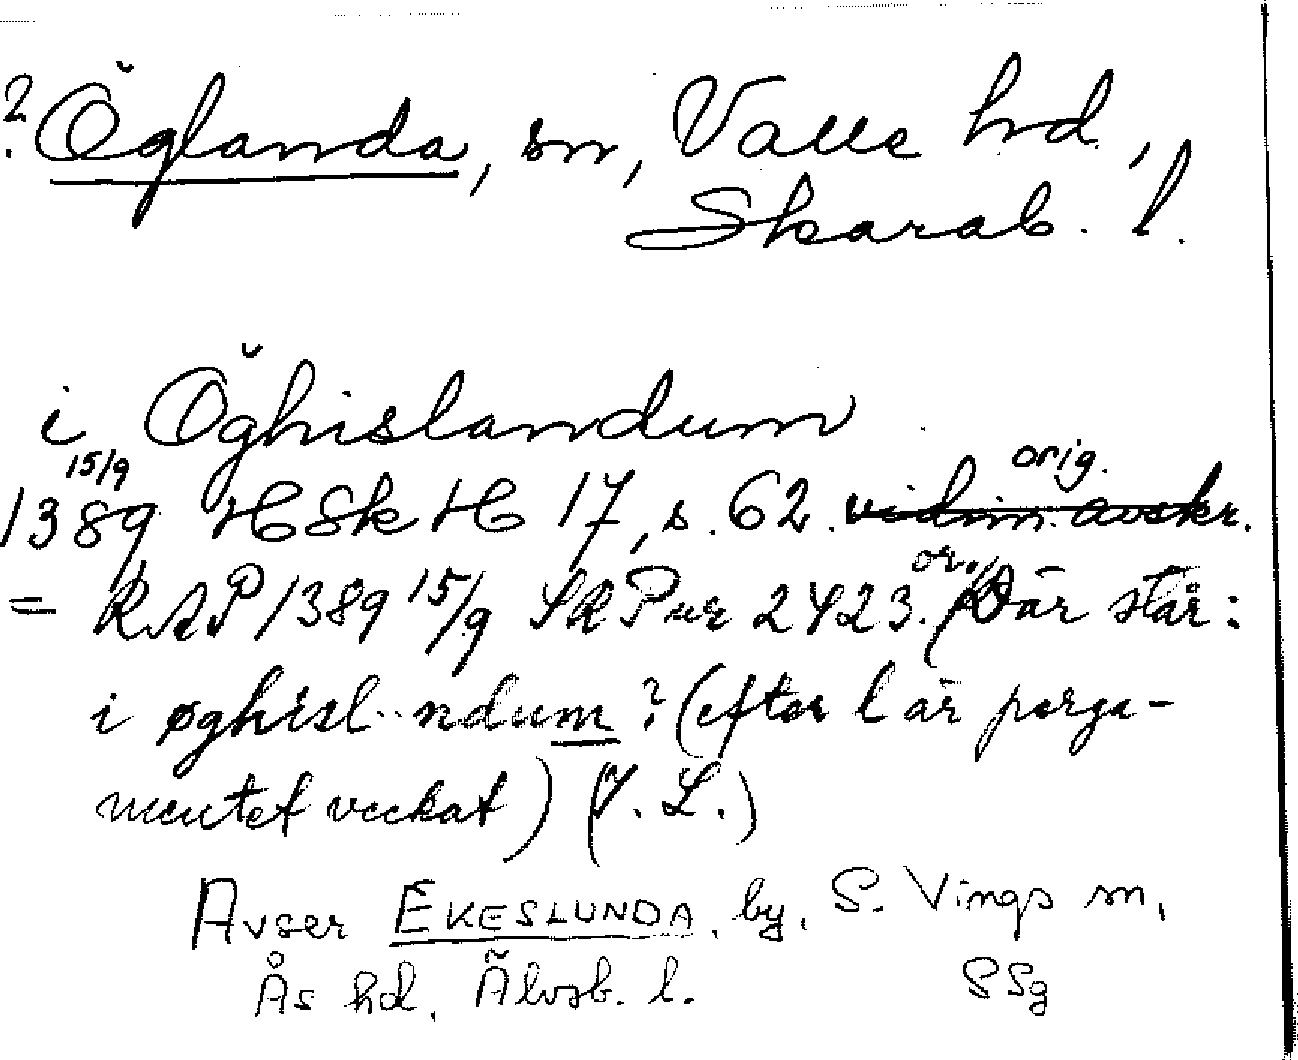 ? Öglanda, sn, Valle hd,
Skarab. l.
i Öghislandum
15/9 orig.
1389 HSkH 17, s. 62. vidim. avskr.
= RAP 1389 15/9 SRPur 2423. or. (Där står:
i øghisl..ndum ? (efter l är perga-
mentet veckat) (I. L.)
Avser EKESLUNDA, by, S. Vings sn,
Ås hd, Älvsb. l. SSg